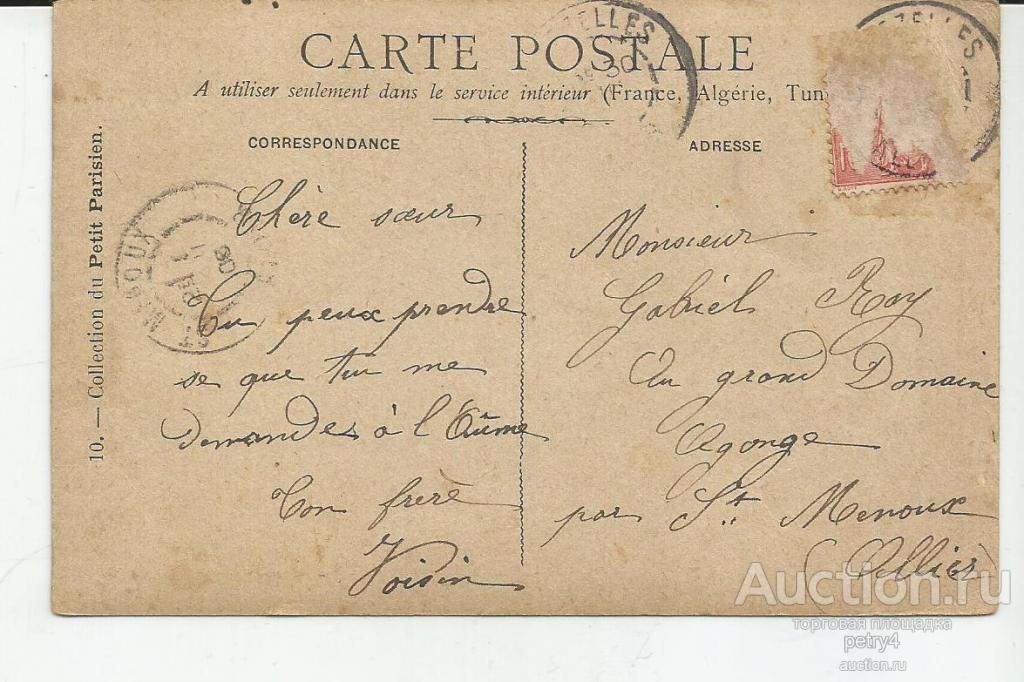 CARTE POSTALE
A utiliser seulement dans le service intérieur (France, Algérie, Tun
CORRESPONDANCE
ADRESSE
10. — Collection du Petit Parisien.
Chère sœur
Tu peux prendre
se que tu me
demandes à l'Aûme
Ton frère
Voisin
Monsieur
Gabriel Roy
Au grand Domaine
Agonge
par St Menoux
(Allier)
ZELLES
ZELLES
ST MENOUX
Auction.ru
торговая площадка
petry4
auction.ru